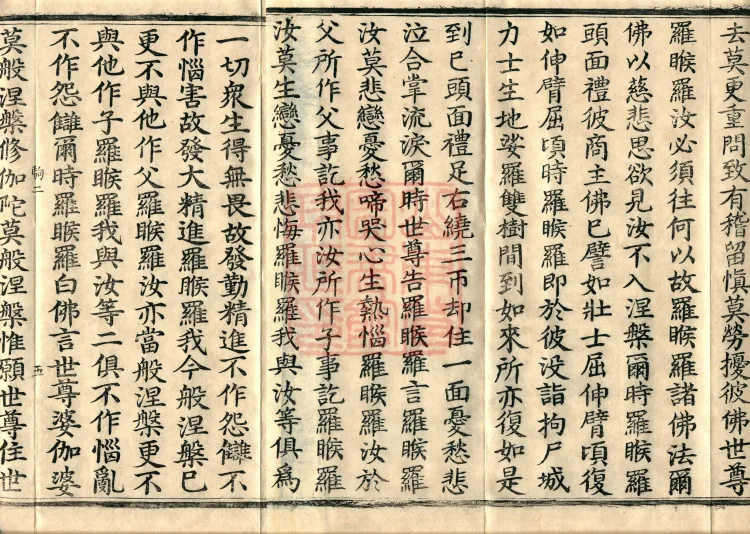 去莫更重問致有稽留慎莫勞擾彼佛世尊
羅睺羅汝必須往何以故羅睺羅諸佛法爾
佛以慈悲思欲見汝不入涅槃爾時羅睺羅
頭面禮彼商主佛已譬如壯士屈伸臂頃復
如伸臂屈頃時羅睺羅即於彼没詣拘尸城
力士生地娑羅雙樹間到如來所亦復如是
到已頭面禮足右繞三帀却住一面憂愁悲
泣合掌流淚爾時世尊告羅睺羅言羅睺羅
汝莫悲戀憂愁啼哭心生熱惱羅睺羅汝於
父所作父事訖我亦汝所作子事訖羅睺羅
汝莫生戀憂愁悲悔羅睺羅我與汝等俱爲
一切衆生得無畏故發勤精進不作怨讎不
作惱害故發大精進羅睺羅我今般涅槃已
更不與他作父羅睺羅汝亦當般涅槃更不
與他作子羅睺羅我與汝等二俱不作惱亂
不作怨讎爾時羅睺羅白佛言世尊婆伽婆
駒二
五
莫般涅槃修伽陀莫般涅槃惟願世尊住世